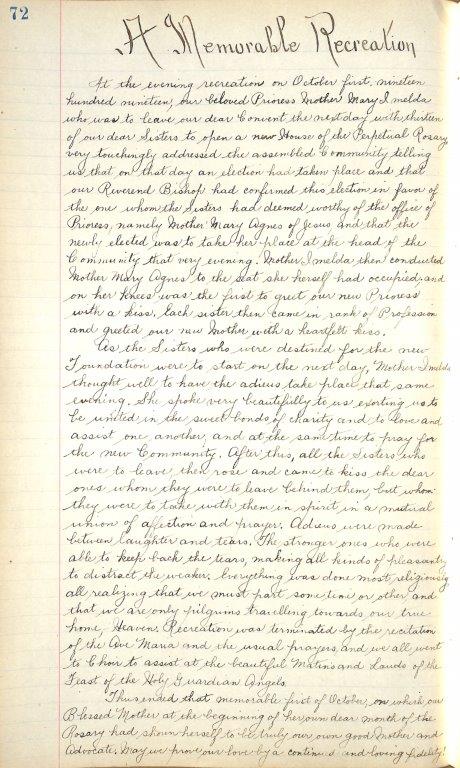 72
A Memorable Recreation
At the evening recreation on October first, nineteen
hundred nineteen, our beloved Prioress Mother Mary Imelda
who was to leave our dear Convent the next day with thirteen
of our dear Sisters to open a new House of the Perpetual Rosary
very touchingly addressed the assembled Community telling
us that on that day an election had taken place and that
our Reverend Bishop had confirmed this election in favor of
the one whom the Sisters had deemed worthy of the office of
Prioress, namely Mother Mary Agnes of Jesus and that the
newly elected was to take her place at the head of the
Community that very evening. Mother Imelda then conducted
Mother Mary Agnes to the seat she herself had occupied and
on her knees was the first to greet our new Prioress
with a kiss. Each sister then came in rank of Profession
and greeted our new Mother with a heartfelt kiss.
As the Sisters who were destined for the new
Foundation were to start on the next day, Mother Imelda
thought well to have the adieus take place that same
evening. She spoke very beautifully to us exorting us to
be united in the sweet bonds of charity and to love and
assist one another, and at the same time to pray for
the new Community. After this, all the Sisters who
were to leave, then rose and came to kiss the dear
ones whom they were to leave behind them, but whom
they were to take with them in spirit in a mutual
union of affection and prayer. Adieus were made
between laughter and tears. The stronger ones who were
able to keep back the tears, making all kinds of pleasantry
to distract the weaker. Everything was done most religiously
all realizing that we must part some time or other and
that we are only pilgrims travelling towards our true
home, Heaven. Recreation was terminated by the recitation
of the Ave Maria and the usual prayers, and we all went
to Choir to assist at the beautiful Matins and Lauds of the
Feast of the Holy Guardian Angels.
Thus ended that memorable first of October, on which our
Blessed Mother at the beginning of her own dear month of the
Rosary had shown herself to be truly our own good Mother and
Advocate. May we prove our love by a continued and loving fidelity!